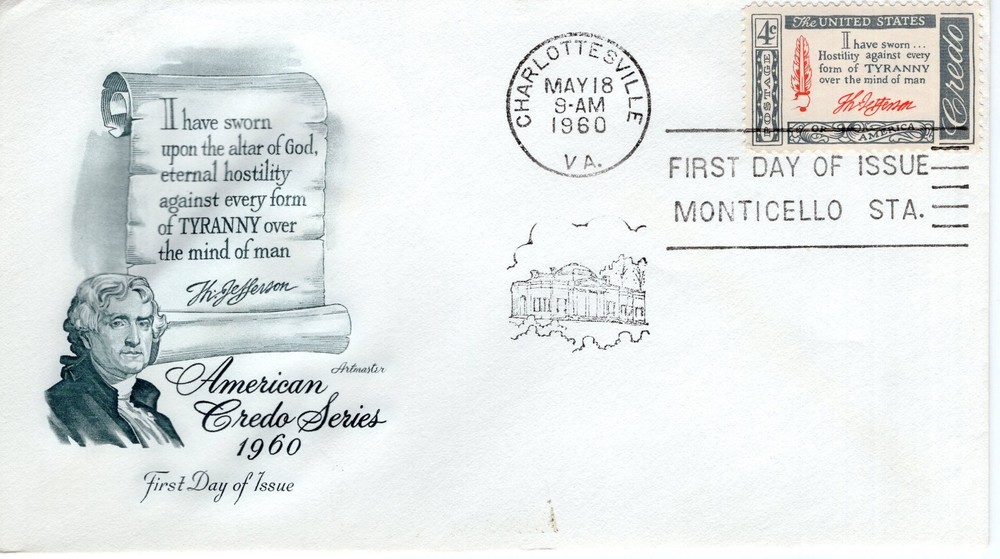 I have sworn
upon the altar of God,
eternal hostility
against every form
of TYRANNY over
the mind of man
Th: Jefferson
Artmaster
American
Credo Series
1960
First Day of Issue
CHARLOTTESVILLE
MAY 18
9-AM
1960
VA.
The UNITED STATES
4¢
POSTAGE
I have sworn...
Hostility against every
form of TYRANNY
over the mind of man
Th Jefferson
OF AMERICA
Credo
FIRST DAY OF ISSUE
MONTICELLO STA.